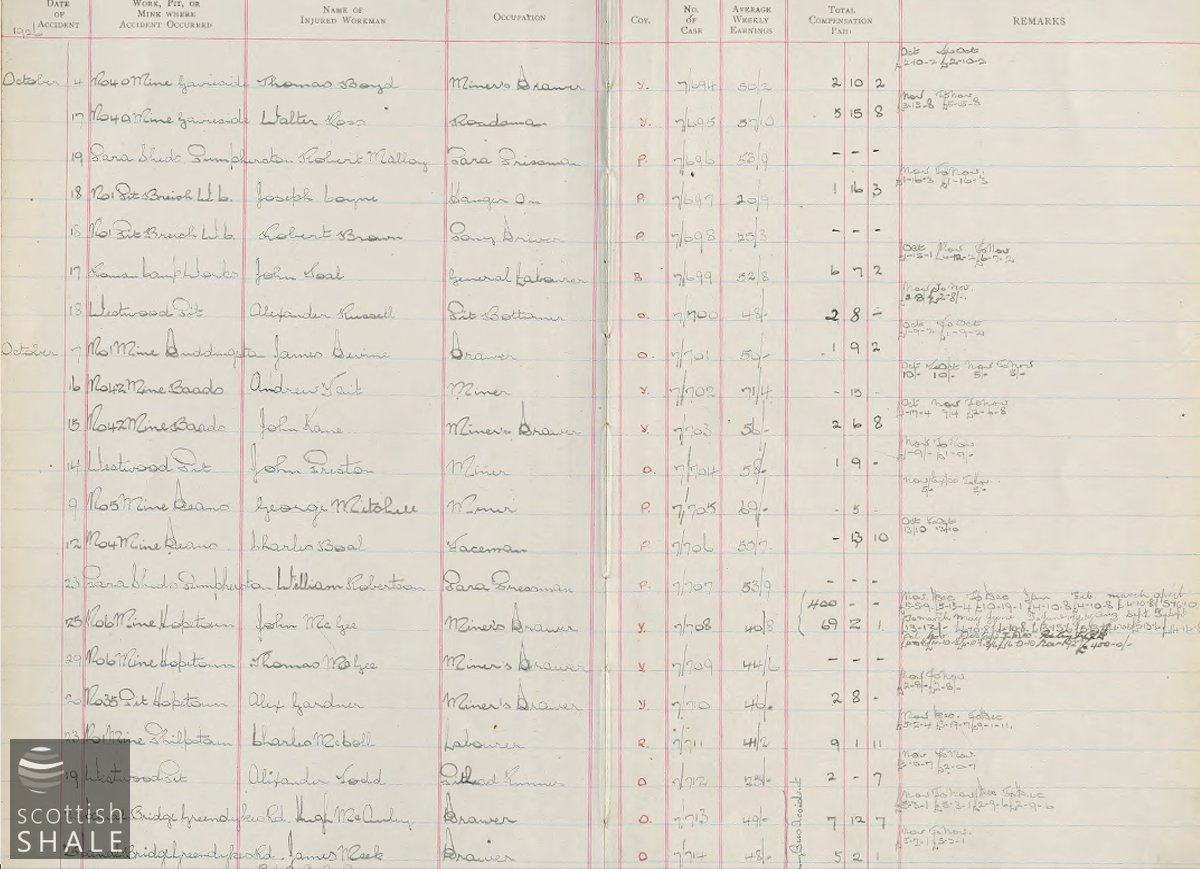 DATE OF ACCIDENT WORK, PIT, OR MINE WHERE ACCIDENT OCCURRED NAME OF INJURED WORKMAN OCCUPATION COY. NO. OF CASE AVERAGE WEEKLY EARNINGS TOTAL COMPENSATION PAID REMARKS
1926
Oct To Oct
£2-10-2 £2-10-2
October 4 No40 Mine Gavieside Thomas Boyd Miner's Drawer Y. 7/694 50/2 2 10 2
Nov To Nov
5-15-8 £5-15-8
17 No40 Mine Gavieside Walter Ross Roadsman Y. 7/695 57/10 5 15 8
19 Para Sheds Pumpherston Robert Malloy Para Pressman P. 7/696 53/9 - - -
Nov To Nov.
£1-16-3 £1-16-3
18 No1 Pit Breich W.b. Joseph Loyne Hanger On P. 7/697 20/9 1 16 3
15 No1 Pit Breich W.b. Robert Brown Pony Driver P. 7/698 25/3 - - -
Oct Nov To Nov
17 Roman Lamp Works John Toal General Labourer B 7/699 52/8 6 7 2
Nov To Nov.
13 Westwood Pit Alexander Russell Pit Bottomer O. 7/700 48/- 2 8 -
Oct To Oct
£1-9-2 £1-9-2
October 7 No1 Mine Duddingston James Devine Drawer O. 7/701 50/- 1 9 2
Oct To Oct Nov To Nov
10/- 10/- 5/- 5/-
16 No42 Mine Baads Andrew Tait Miner Y. 7/702 71/4 - 15 -
Oct Nov To Nov
£1-17-4 9/4 £2-6-8
15 No42 Mine Baads John Kane Miner's Drawer Y. 7/703 56/- 2 6 8
Nov To Nov
£1-9/- £1-9/-
14 Westwood Pit John Preston Miner O. 7/704 58/- 1 9 -
5/- 5/-
9 No5 Mine Deans George Mitchell Miner P. 7/705 69/- - 5 -
Oct To Oct
13/10 13/10
12 No4 Mine Deans Charles Boal Faceman P. 7/706 50/7 - 13 10
23 Para Sheds Pumpherston William Robertson Para Pressman P. 7/707 53/9 - - -
400 - -
Nov. Dec To Dec Jan Feb. March April
25 No6 Mine Hopetoun John McGee Miner's Drawer Y. 7/708 40/8 69 2 1
29 No6 Mine Hopetoun Thomas McGee Miner's Drawer Y. 7/709 44/6 - - -
Nov To Nov
£2-8/- £2-8/-
20 No35 Pit Hopetoun Alex Gardner Miner's Drawer Y. 7/710 46/- 2 8 -
Nov Dec. To Dec
£5-2-4 £3-19-7 £9-1-11
23 No1 Mine Philpstoun Charles McColl Labourer R. 7/711 41/2 9 1 11
Nov To Nov.
£2-0-7 £2-0-7
19 Westwood Pit Alexander Todd Pithead Runner O 7/712 25/- 2 - 7
Nov To Nov Dec To Dec
£5-3-1 £5-3-1 £2-9-6 £2-9-6
Bridge Greendykes Rd. Hugh McAuley Drawer O. 7/713 49/- 7 12 7
Nov To Nov.
Bridge Greendykes Rd. James Meek Drawer O 7/714 48/- 5 2 1
Accident
scottish
SHALE